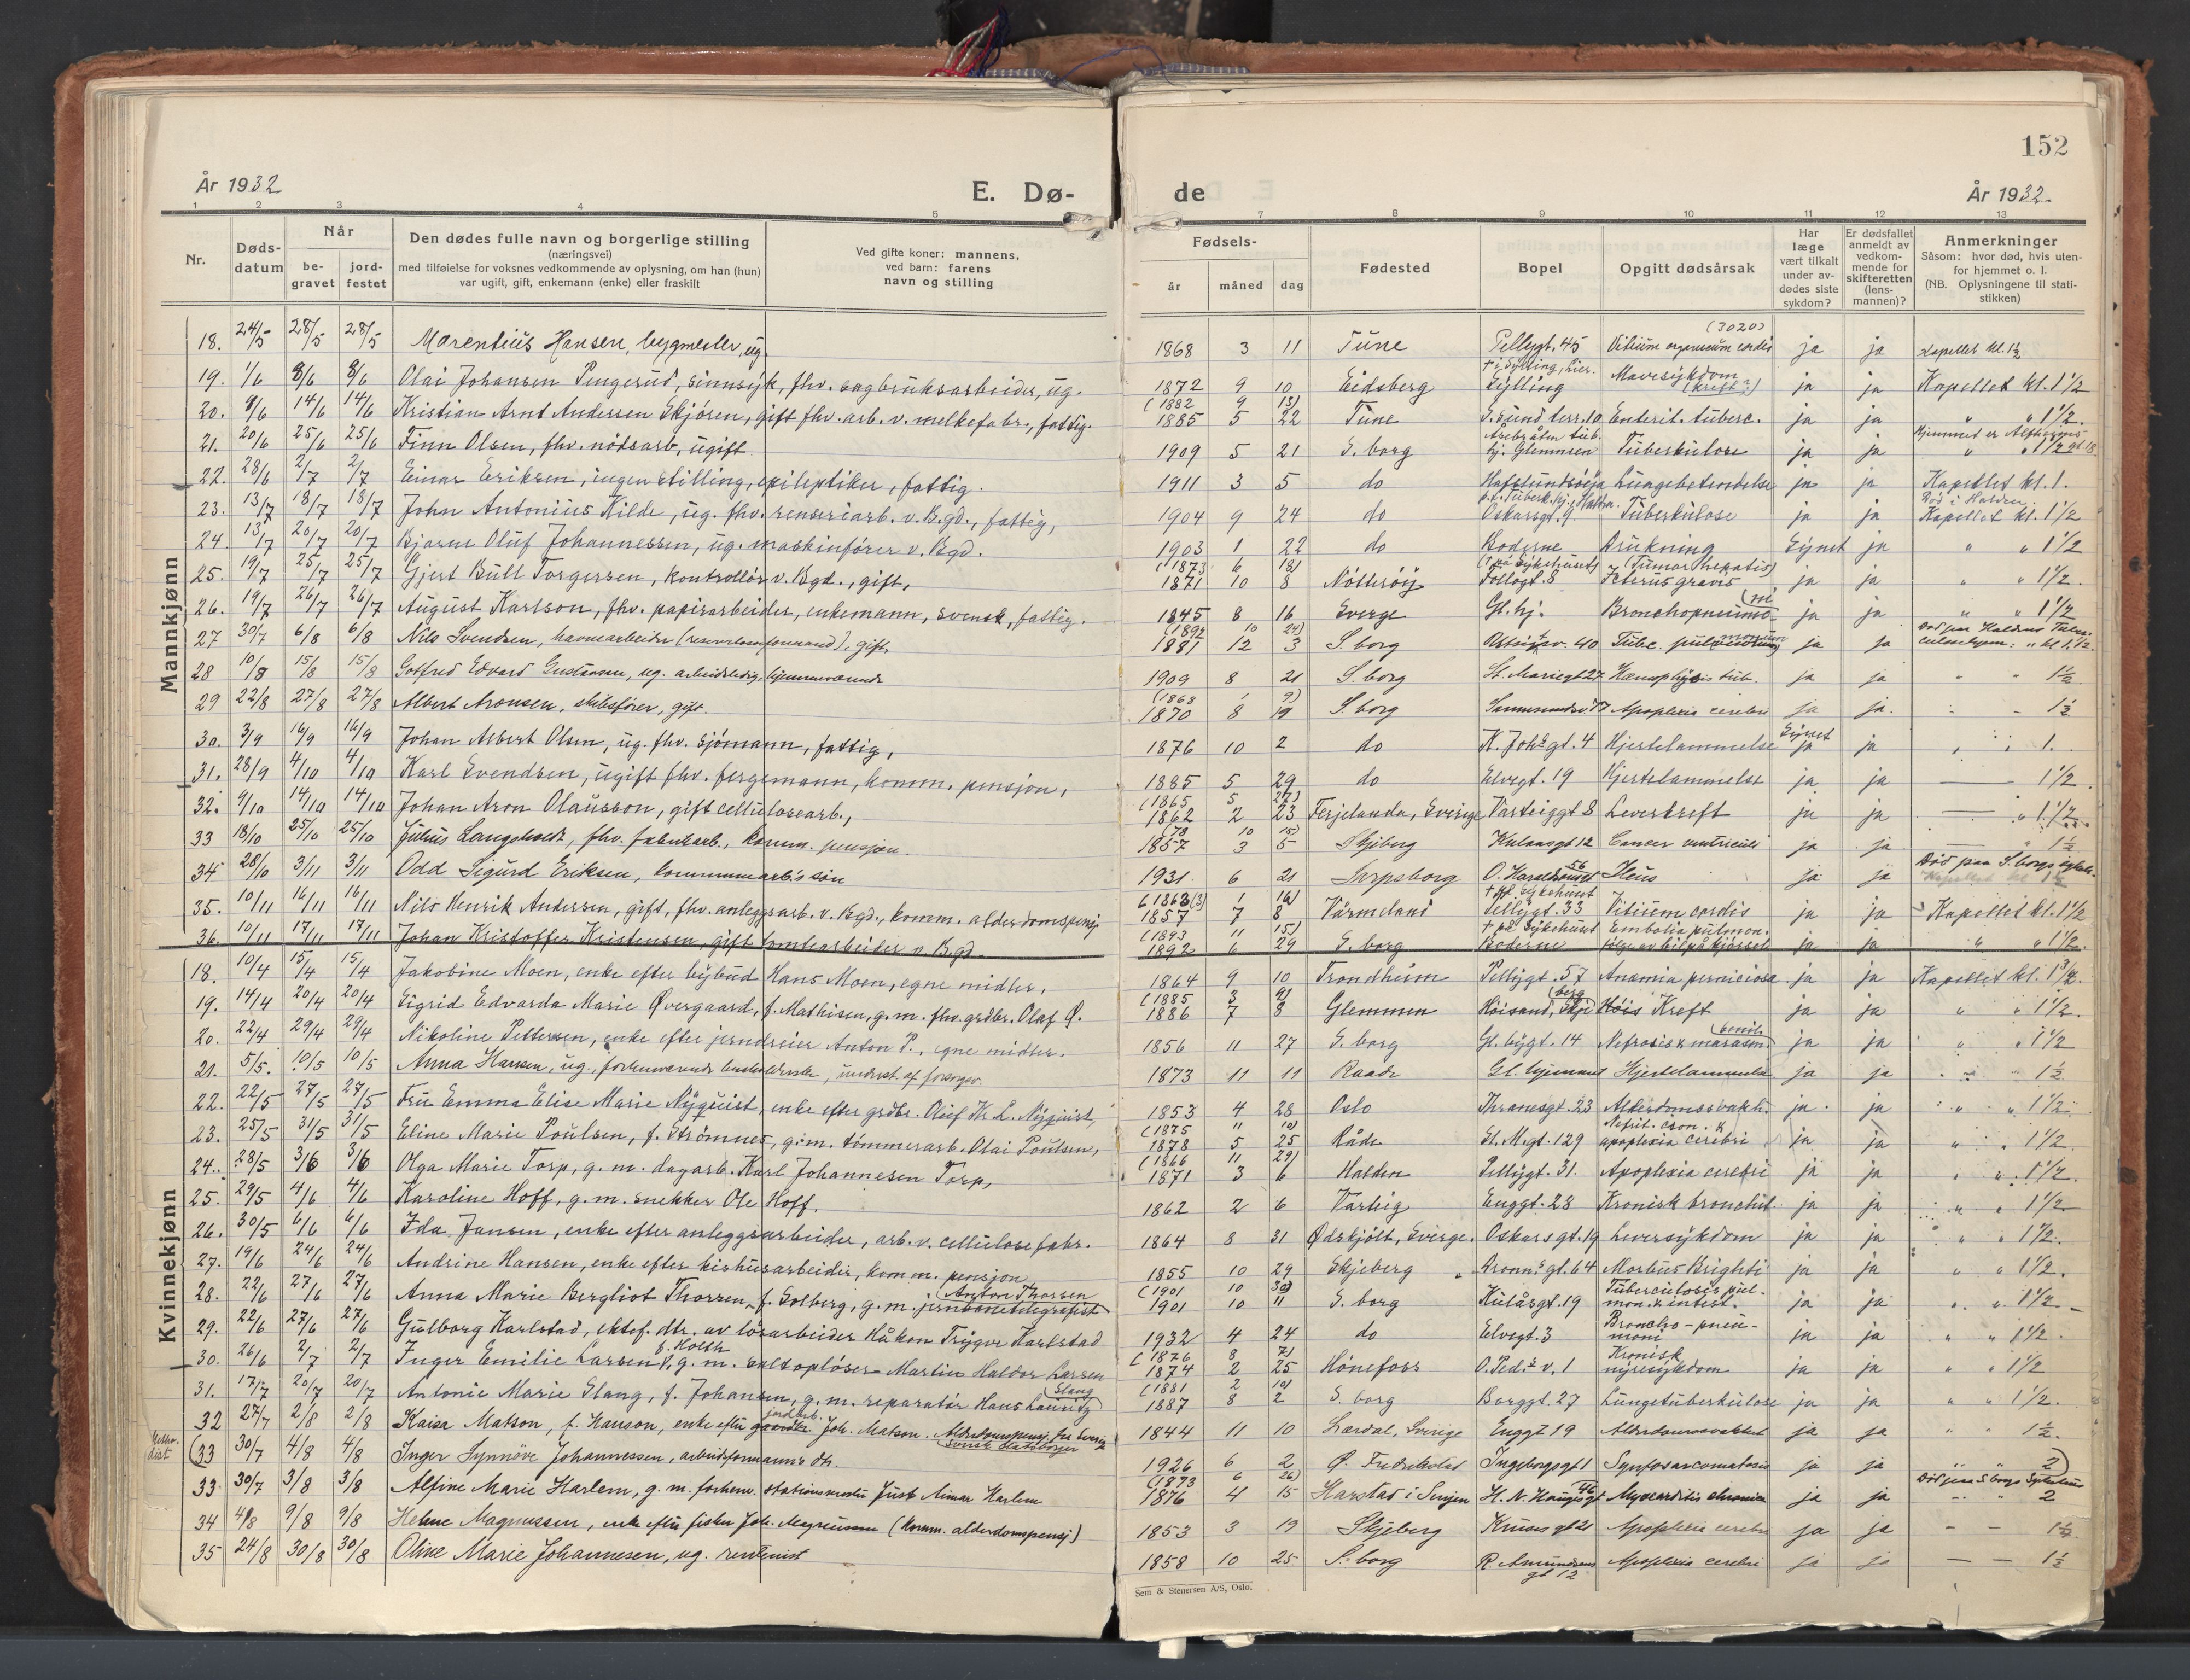 152
År 1932
E. Dø-
de
År 1932.
1 2 3 4 5 7 8 9 10 11 12 13
Nr.
Døds-
datum
Når
be-
gravet
jord-
festet
Den dødes fulle navn og borgerlige stilling
(næringsvei)
med tilføielse for voksnes vedkommende av oplysning, om han (hun)
var ugift, gift, enkemann (enke) eller fraskilt
Ved gifte koner: mannens,
ved barn: farens
navn og stilling
Fødsels-
år måned dag
Fødested
Bopel
Opgitt dødsårsak
Har
læge
vært tilkalt
under av-
dødes siste
sykdom?
Er dødsfallet
anmeldt av
vedkom-
mende for
skifteretten
(lens-
mannen)?
Anmerkninger
Såsom: hvor død, hvis uten-
for hjemmet o. l.
(NB. Oplysningene til stati-
stikken)
Mannkjønn
18. 24/5 28/5 28/5 Marentius Hansen, bygmester, ug. 1868 3 11 Tune Pellygt. 45 (3020) Vitium organicum cordis ja ja Kapellet kl. 1½
19. 1/6 8/6 8/6 Olai Johansen Pengerud, sinnsyk, fhv. sagbruksarbeider, ug. 1872 9 10 Eidsberg † i Sylling, Lier. Sylling Mavesykdom (kreft?) ja ja Kapellet kl. 1½
20. 9/6 14/6 14/6 Kristian Arnt Andersen Skjören, gift fhv. arb. v. melkefabr., fattig. (1882 9 13) 1885 5 22 Tune S.sund terr. 10 Enterit. tuberc. ja ja " " 1½.
21. 20/6 25/6 25/6 Finn Olsen, fhv. nödsarb, ugift 1909 5 21 S. borg tub. hj. Glemmen Tuberkulose ja ja Hjemmed er " " 1½
22. 28/6 2/7 2/7 Einar Eriksen, ingen stilling, epileptiker, fattig. 1911 3 5 do Hafslundsöya Lungebetendelse ja ja Kapellet kl. 1.
23. 13/7 18/7 18/7 John Antonius Kilde, ug. fhv. renseriarb. v. B.gd., fattig, 1904 9 24 do Tuberk.hj. Halden. Oskarsgt. 9 Tuberkulose ja ja Död i Halden. Kapellet kl. 1½
24. 13/7 20/7 20/7 Bjarne Oluf Johannessen, ug. maskinförer v. Bgd. 1903 1 22 do Boderne Drukning Synet ja " " 1½
25. 19/7 25/7 25/7 Gjert Bull Torgersen, kontrollör v. Bgd., gift, (1873 6 18) 1871 10 8 Nötteröy († på Sykehuset) Follogt. 8 (Tumor hepatis) Icterus gravis ja ja " " 1½.
26. 19/7 26/7 26/7 August Karlson, fhv. papirarbeider, enkemann, svensk, fattig. 1845 8 16 Sverge Gl. hj. Bronchopneumoni ja ja " " 1½
27 30/7 6/8 6/8 Nils Svendsen, havnearbeider (), gift, (1892 10 24) 1881 12 3 S. borg 40 Tubc. pulmonum ja ja Död paa Haldens Tuber-culosehjem. " kl 1½.
28 10/8 15/8 15/8 Gotfred Edvard Gustavsen, ug. arbeidsledig, hjemmeværende 1909 8 21 S. borg St. Mariegt 27 Hæmoptysis tub. ja ja " " 1½
29 22/8 27/8 27/8 Albert Aronsen, skibsförer, gift. (1868 1 9) 1870 8 19 S. borg 77 Apoplexia cerebri ja ja. - - 1½
30. 3/9 16/9 16/9 Johan Albert Olsen, ug. fhv. sjömann, fattig, 1876 10 2 do K. Joh's gt. 4 Hjertelammelse Synet ja ja " " 1.
31. 28/9 4/10 4/10 Karl Svendsen, ugift fhv. fergemann, komm. pensjon, 1885 5 29 do Elvegt. 19 Hjertelammelse ja ja — — 1½.
32. 9/10 14/10 14/10 Johan Aron Olausson, gift cellulosearb., (1865 5 27) 1862 2 23 Ferjelanda, Sverige Varteiggt 8 Leverkreft ja ja — " 1½.
33 18/10 25/10 25/10 Julius Langholdt, fhv. fabrikarb., komm. pensjon. (78 10 15) 1857 3 5 Skjeberg Kulaasgt 12 Cancer ventriculi ja ja — " 1½
34 28/10 3/11 3/11 Odd Sigurd Eriksen, kommunearb.s sön 1931 6 21 Sarpsborg O. Haraldssonsgt 56 Ileus ja ja Död paa S.borgs sykeh. Kapellet kl 1½
35. 10/11 16/11 16/11 Nils Henrik Andersen, gift, fhv. anleggsarb. v. Bgd., komm. alderdomspensj (1863(3) 1 16) 1857 7 8 Värmeland † på sykehuset Pellygt. 33 Vitium cordis ja ja Kapellet kl. 1½
36. 10/11 17/11 17/11 Johan Kristoffer Kristensen, gift tomtearbeider v. Bgd. (1893 11 15) 1892 6 29 S. borg † på Sykehuset Boderne Embolia pulmon. følge av bilpåkjørsel ja ja " " 1½.
Kvinnekjønn
18. 10/4 15/4 15/4 Jakobine Moen, enke efter bybud Hans Moen, egne midler, 1864 9 10 Trondheim Pellygt. 57 Anæmia perniciosa ja ja Kapellet kl. 1¾.
19. 14/4 20/4 20/4 Sigrid Edvarda Marie Øvergaard, f. Mathisen, g. m. fhv. grdbr. Olaf Ø. (1885 3 9) 1886 7 8 Glemmen Höisand, Skjeberg Höis Kreft ja ja " " 1½.
20. 22/4 29/4 29/4 Nikoline Pettersen, enke efter jerndreier Anton P., egne midler. 1856 11 27 S. borg Gl. bygt. 14 Nefrosis & marasm. (senil.) ja ja " " 1½
21. 5/5. 10/5 10/5 Anna Hansen, ug., forhenværende, underst. af forsorgsv. 1873 11 11 Raade Gl. hjemmet Hjertelammelse ja ja " " 1½
22. 22/5 27/5 27/5 Fru Emma Elise Marie Nyquist, enke efter grdbr. Oluf Kr. L. Nyquist, 1853 4 28 Oslo Thranesgt. 23 Alderdomssvakh. ja. ja " " 1½
23. 25/5 31/5 31/5 Eline Marie Poulsen, f. Strömnes, g. m. tömmerarb. Olai Poulsen, (1875 11 10) 1878 5 25 Råde St. M.gt. 129 Nefrit. cron. & apoplexia cerebri ja ja " " 1½
24. 28/5 3/6 3/6 Olga Marie Torp, g. m. dagarb. Karl Johannesen Torp, (1866 11 29) 1871 3 6 Halden Pellygt. 31. Apoplexia cerebri ja ja " " 1½.
25. 29/5 4/6 4/6 Karoline Hoff, g. m. snekker Ole Hoff. 1862 2 6 Varteig Enggt. 28 Kronisk bronchit. ja ja " " 1½
26. 30/5 6/6 6/6 Ida Jansen, enke efter anleggsarbeider, arb. v. cellulosefabr. 1864 8 31 Ødskjölt, Sverge. Oskarsgt. 19 Leversykdom ja ja " " 1½.
27. 19/6 24/6 24/6 Andrine Hansen, enke efter kishusarbeider, komm. pensjon 1855 10 29 Skjeberg Dronn.s gt. 64 Morbus Brighti ja ja " " 1½.
28. 22/6 27/6 27/6 Anna Marie Bergliot Thorsen, f. Solberg, g. m. jernbanetelegrafist (Anton Thorsen (1901 10 30) 1901 10 11 S. borg Kulåsgt. 19 Tuberculosis pul-mon. & intest. ja ja " " 1½
29. 22/6 27/6 27/6 Gulborg Karlstad, ektef. dtr. av lösarbeider Håkon Trygve Karlstad 1932 4 24 do Elvegt. 3 Broncho-pneu-moni ja ja " " 1½.
30. 26/6 2/7 2/7 Inger Emilie Larsen, f. Holth, g. m. saltoplöser Martin Haldor Larsen (1876 8 7) 1874 2 25 Hönefoss O. Ped.s v. 1 Kronisk nyresykdom ja ja " " 1½
31. 17/7 20/7 20/7 Antonie Marie Slang, f. Johansen, g. m. reparatör Hans Lauritz Slang (1881 2 10) 1887 8 2 S. borg Borggt. 27 Lungetuberkulose ja ja " " 1½.
32 27/7 2/8 2/8 Kaisa Matson, f. Hanson, enke efter jordarb. Joh. Matson. Alderdomspensj. fra Sverige Svensk statsborger 1844 11 10 Lærdal, Sverige Enggt 19 Alderdomssvakhet ja ja " " 1½.
Metho-dist (33 30/7 4/8 4/8 Inger Synnöve Johannessen, arbeidsformanns dtr. 1926 6 2 Ø. Fredrikstad Ingeborgsgt 1 Lymfosarcomatosis ja ja " " 2)
33 30/7 3/8 3/8 Alfine Marie Harlem, g. m. forhenv. stationsmester Just Aimar Harlem (1873 6 26) 1876 4 15 Harstad i Senjen H. N. Haugesgt 46 Myocarditis chronica ja ja Död paa S borgs Sykehus " 2
34 4/8 9/8 9/8 Helene Magnussen, enke efter fisker Joh. Magnussen (komm. alderdomspensj) 1853 3 19 Skjeberg Krusesgt 21 Apoplexia cerebri ja ja — — 1½.
35 24/8 30/8 30/8 Oline Marie Johannesen, ug. rentenist 1858 10 25 S. borg R. Amundsens gt 12 Apoplexia cerebri ja ja — — 1½
Sem & Stenersen A/S, Oslo.